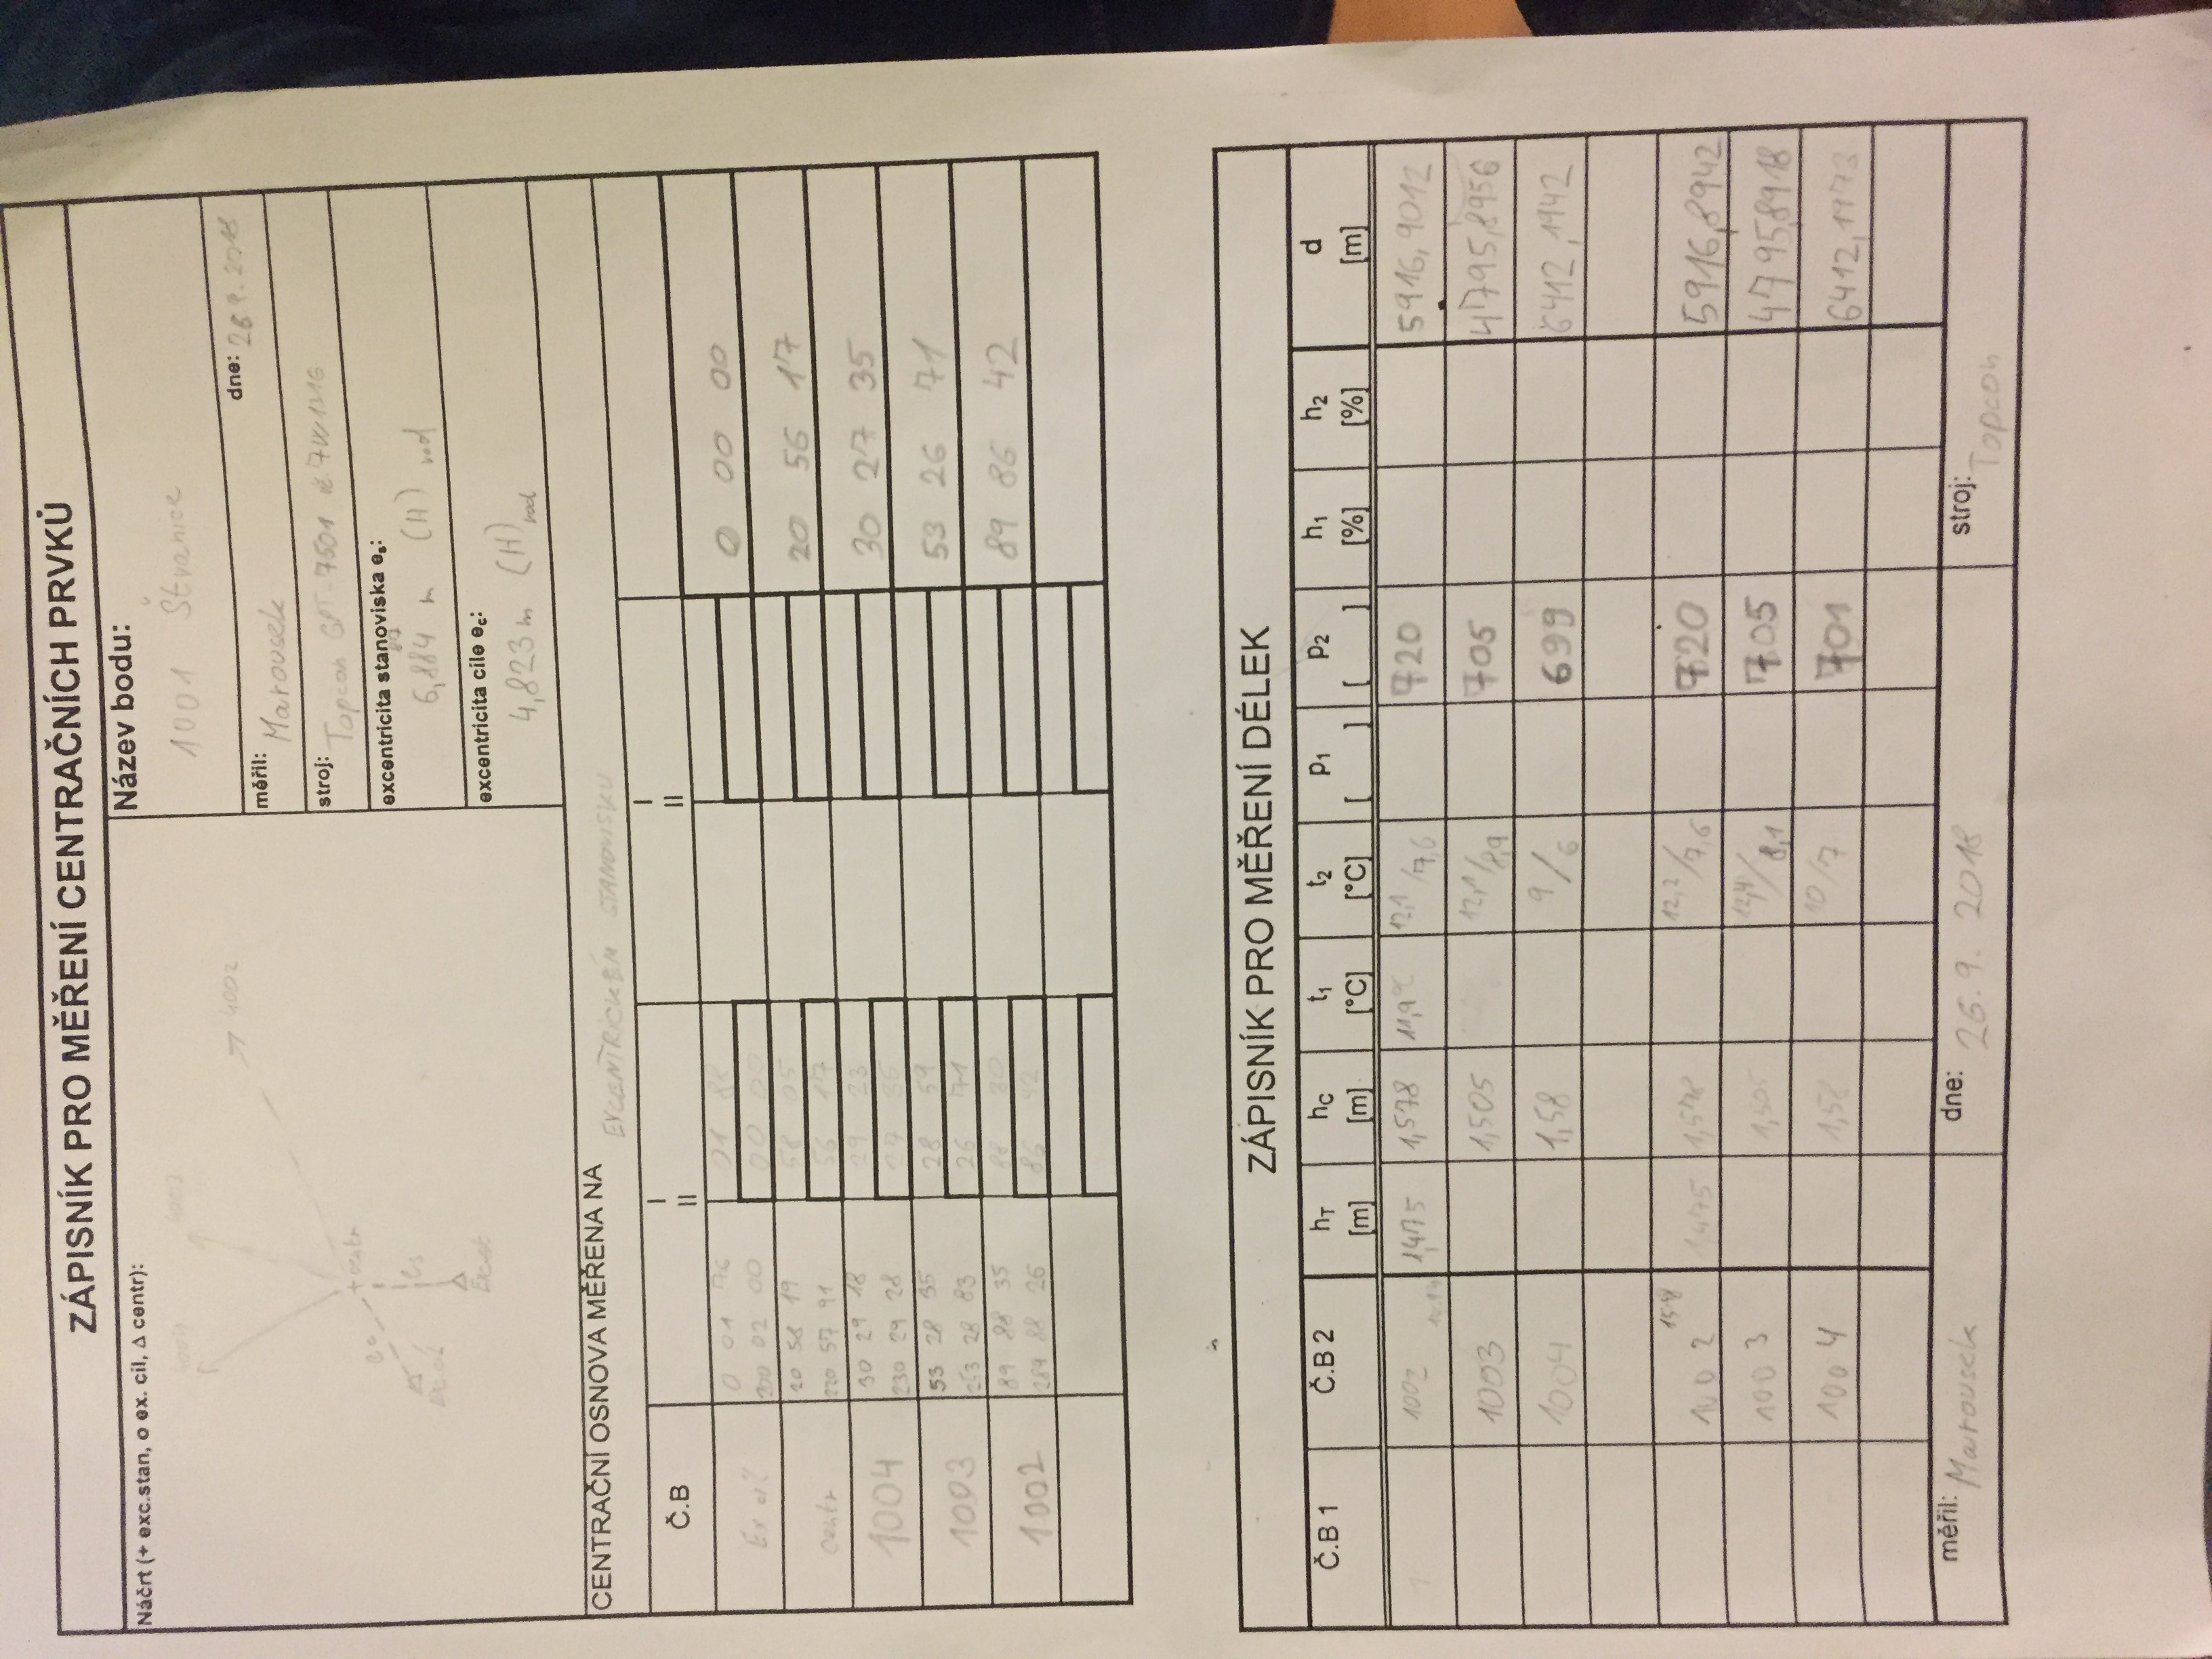 ZÁPISNÍK PRO MĚŘENÍ CENTRAČNÍCH PRVKŮ
Náčrt (+ exc.stan, o ex. cíl, Δ centr):
4003
4002
+ centr
ec
es
Název bodu:
1001 Štvanice
měřil: Marousek
dne: 26.9.2018
stroj: Topcon GPT-7501
excentricita stanoviska es:
6,884 m (H) vod
excentricita cíle ec:
4,823 m (H) vod
CENTRAČNÍ OSNOVA MĚŘENA NA EXCENTRICKÉM STANOVISKU
Č.B I II I II
Ex cíl 0 01 76 01 88 0 00 00
200 02 00 00 00
centr 20 58 19 58 05 20 56 17
220 57 91 56 17
1004 30 29 18 29 23 30 27 35
230 29 28 27 35
1003 53 28 35 28 59 53 26 71
253 28 83 26 71
1002 89 88 35 88 30 89 86 42
289 88 26 86 42
ZÁPISNÍK PRO MĚŘENÍ DÉLEK
Č.B 1 Č.B 2 hT [m] hC [m] t1 [°C] t2 [°C] p1 [ ] p2 [ ] h1 [%] h2 [%] d [m]
1 1002 1,475 1,578 11,9°C 12,1/7,6 720 5916,9012
1003 1,505 12,1/8,9 705 4795,8956
1004 1,58 9/6 699 6412,1942
1002 1,475 1,578 12,2/7,6 720 5916,8942
1003 1,505 12,4/8,1 705 4795,8918
1004 1,58 10/7 701 6412,1973
měřil: Marousek dne: 26.9. 2018 stroj: Topcon